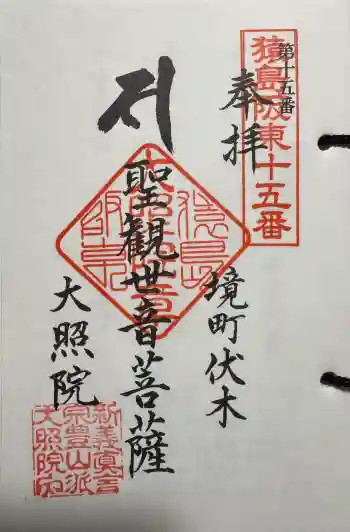 猿島阪東十五番
第十五番
奉拝
境町伏木
聖観世音菩薩
大照院
新義真言
宗豊山派
大照院内